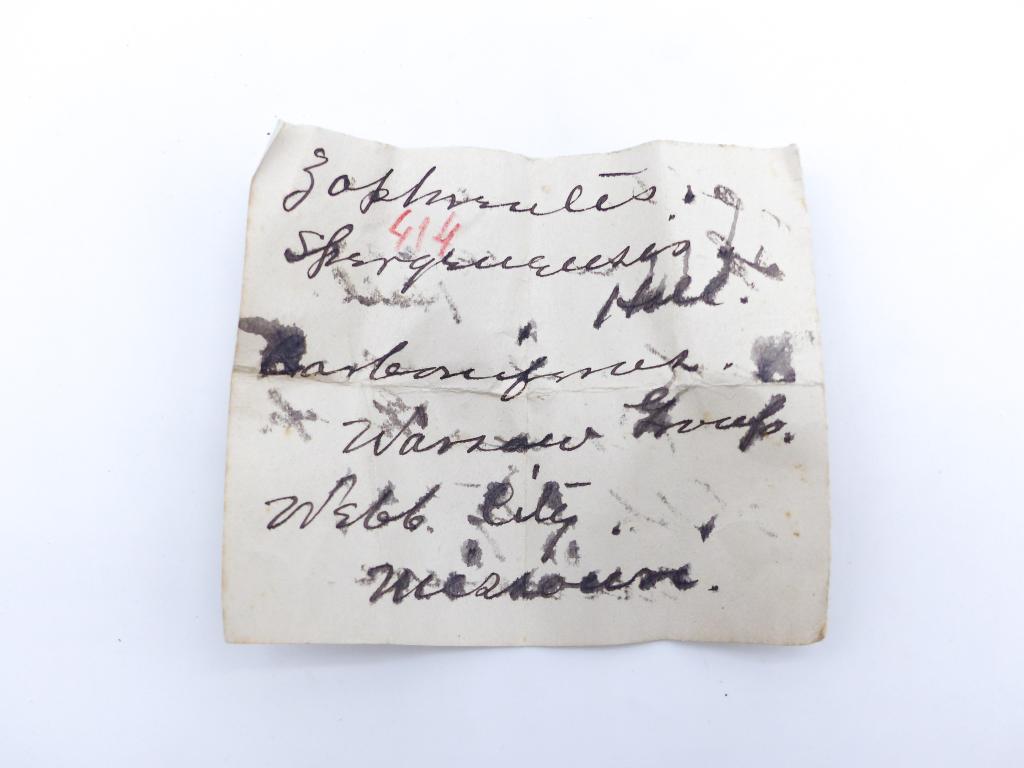 Zaphrentes.
414
Spergenensis
Hall.
Carboniferous.
Warsaw Group.
Webb. City.
Missouri.